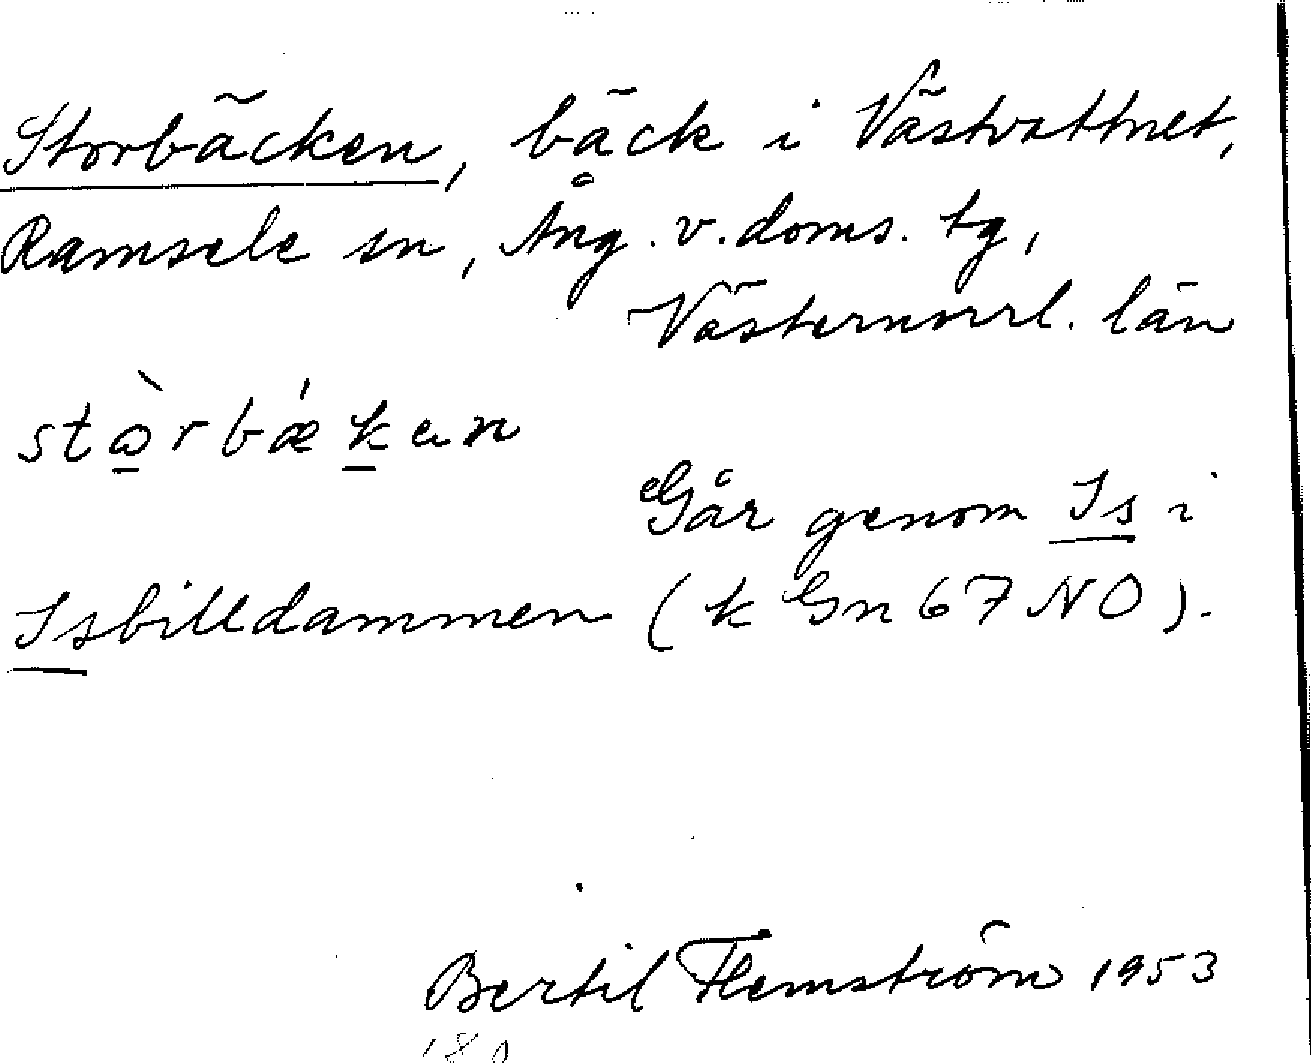 Storbäcken, bäck i Västvattnet,
Ramsele sn, Ång. v. doms. tg,
Västernorrl. län
stɷ̠̀rbǽk̠an
Går genom Is i
Isbilldammen (k Gn 67 NO).
Bertil Flemström 1953